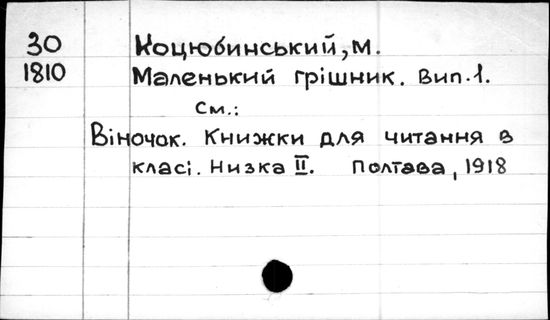 30 Коцюбинський, м.
1810 Маленький грішник. Вип.1.
См.:
Віночок. Книжки для читання в
класі. Низка II. Полтава, 1918